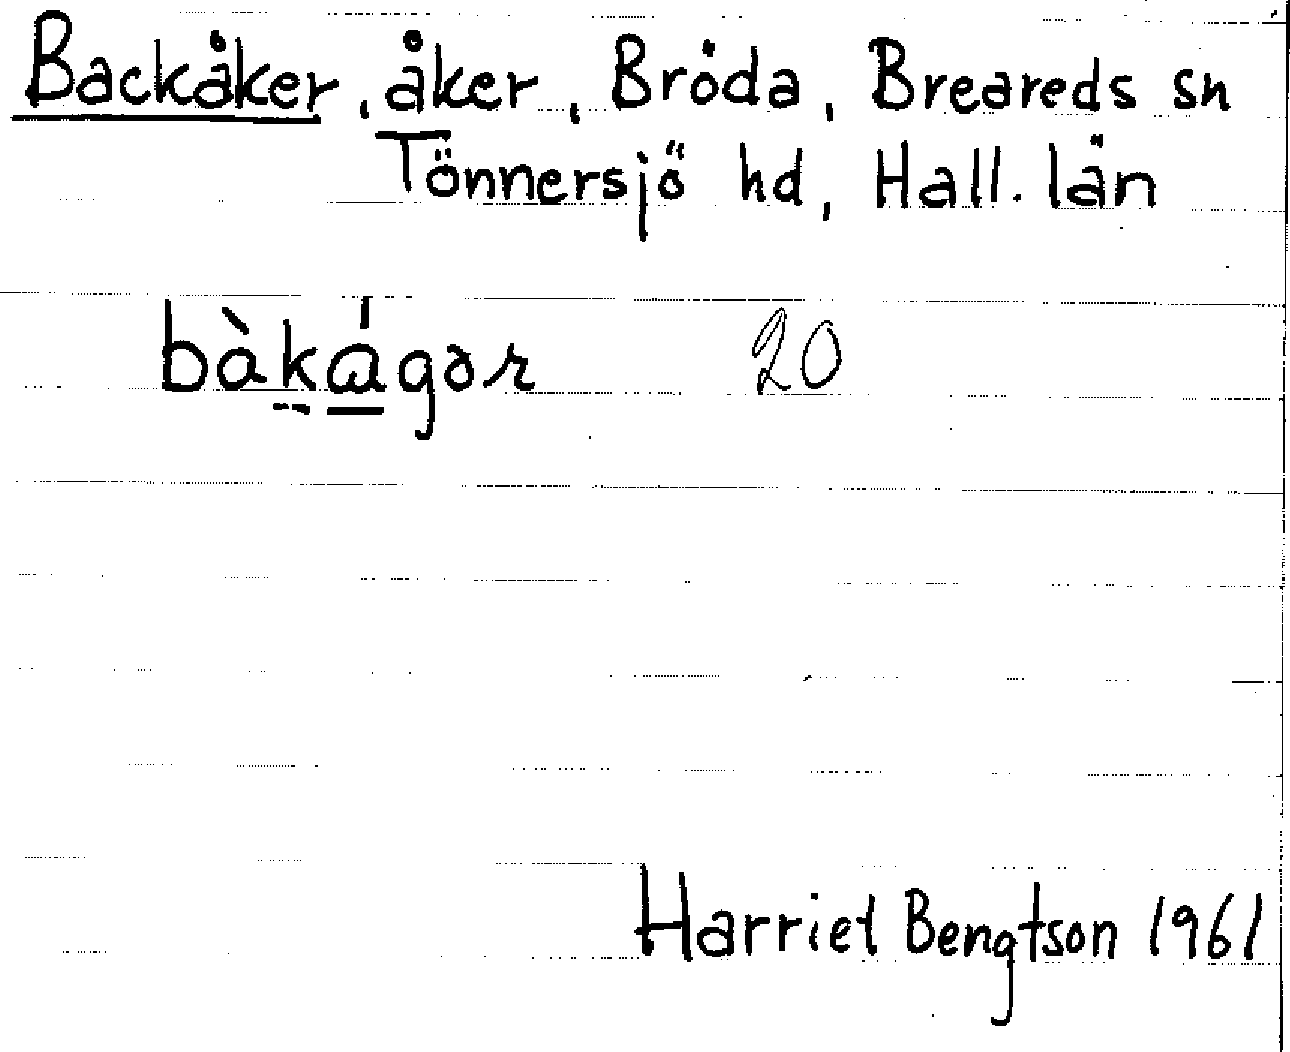 Backåker, åker, Bröda, Breareds sn
Tönnersjö hd, Hall. län
bàkágər 20
Harriet Bengtson 1961